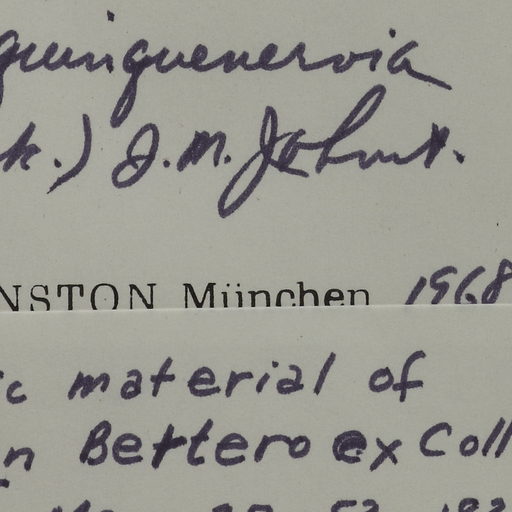 quinquenervia
k.) J.M. Johnst.
NSTON München 1968
c material of
n Bertero ex Coll